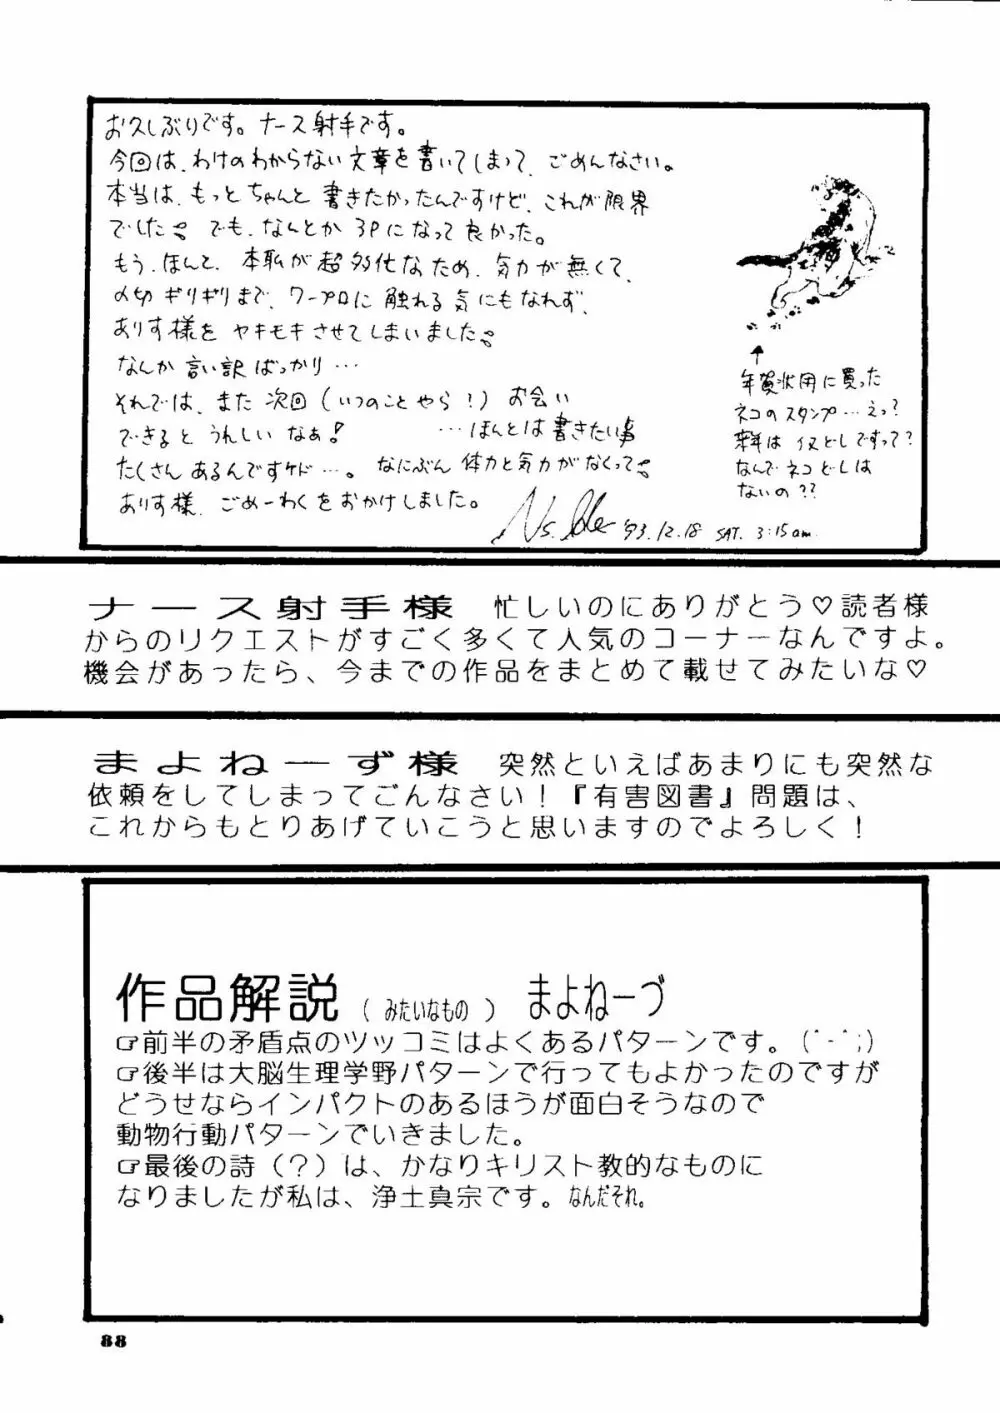 お久しぶりです。ナース射手です。
今回は、わけのわからない文章を書いてしまって、ごめんなさい。
本当は、もっとちゃんと書きたかったんですけど、これが限界
でした。でも、なんとか3Pになって良かった。
もう、ほんと、本職が超多忙なため、気力が無くて、
〆切ギリギリまで、ワープロに触れる気にもなれず、
ありす様をヤキモキさせてしまいました。
なんか言い訳ばっかり…
それでは、また次回(いつのことやら!)お会い
できるとうれしいなぁ! …ほんとは書きたい事
たくさんあるんですケド…。なにぶん体力と気力がなくって。
ありす様、ごめーわくをおかけしました。
'93.12.18 SAT. 3:15am
↑
年賀状用に買った
ネコのスタンプ…えっ?
来年は イヌどしですって?
なんでネコどしは
ないの??
ナース射手様 忙しいのにありがとう♡読者様
からのリクエストがすごく多くて人気のコーナーなんですよ。
機会があったら、今までの作品をまとめて載せてみたいな♡
まよねーず様 突然といえばあまりにも突然な
依頼をしてしまってごんなさい!『有害図書』問題は、
これからもとりあげていこうと思いますのでよろしく!
作品解説(みたいなもの) まよねーづ
☞前半の矛盾点のツッコミはよくあるパターンです。(^-^;)
☞後半は大脳生理学野パターンで行ってもよかったのですが
どうせならインパクトのあるほうが面白そうなので
動物行動パターンでいきました。
☞最後の詩(?)は、かなりキリスト教的なものに
なりましたが私は、浄土真宗です。なんだそれ。
88